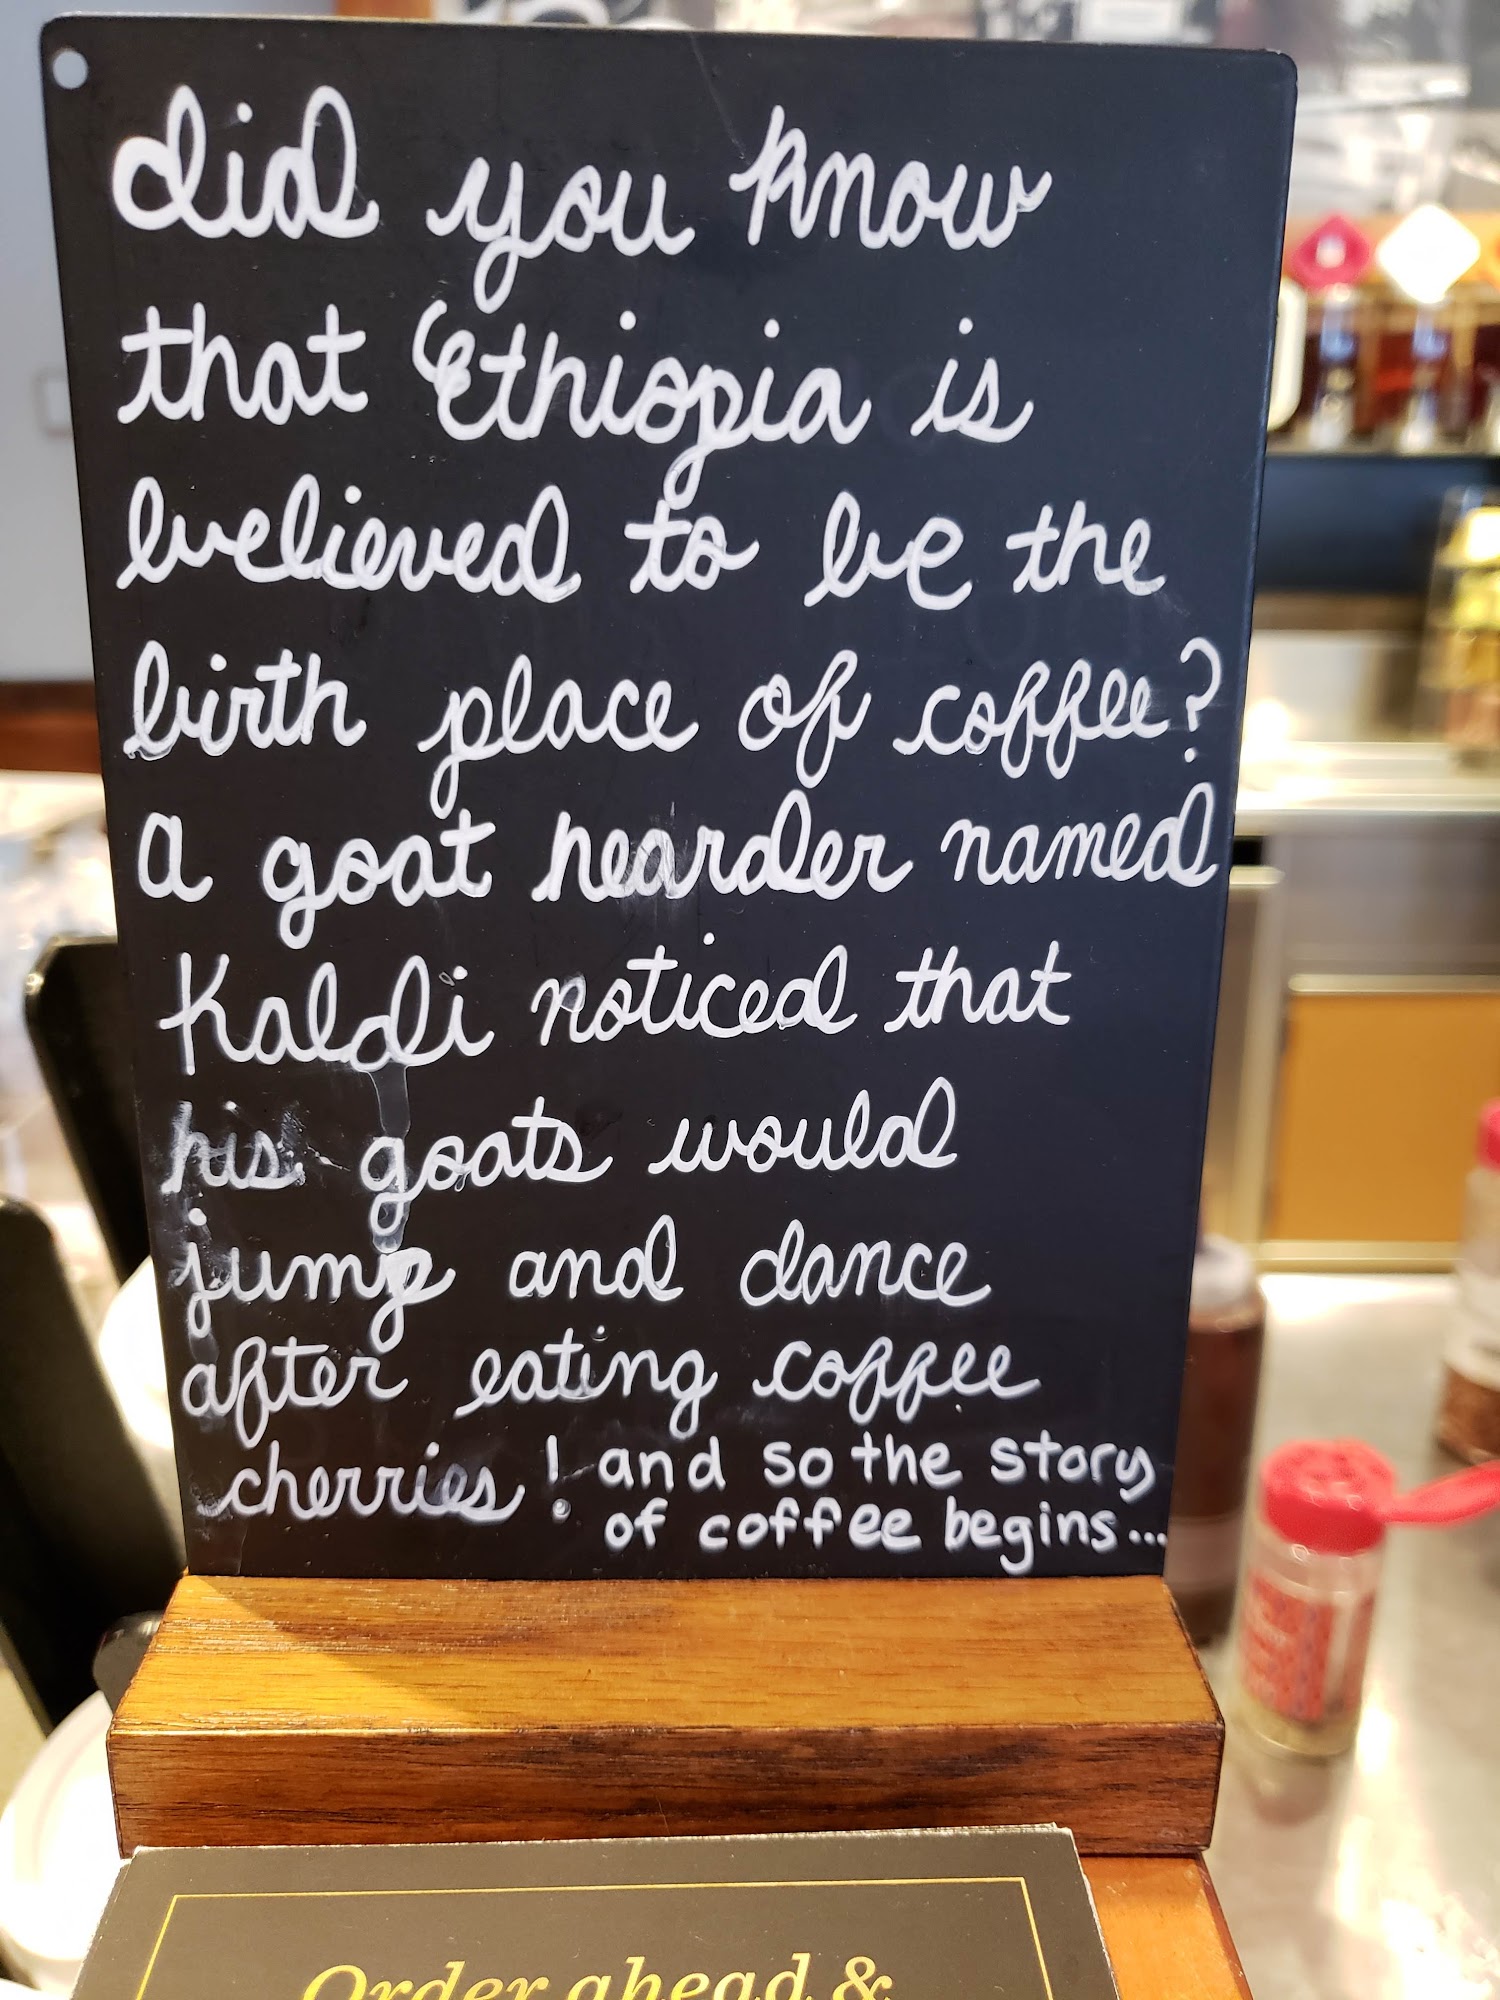 did you know
that Ethiopia is
believed to be the
birth place of coffee?
a goat hearder named
Kaldi noticed that
his goats would
jump and dance
after eating coffee
cherries! and so the story
of coffee begins...
Order ahead &